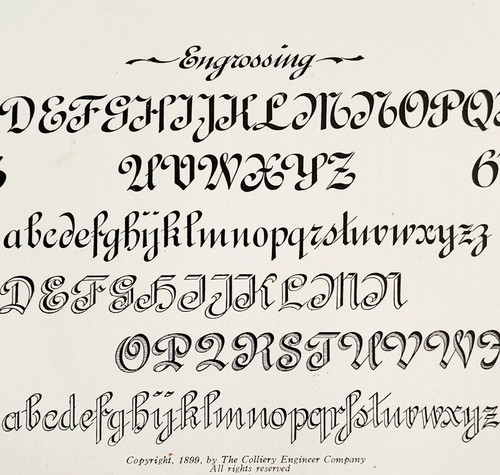 Engrossing
DEFGHIJKLMNOPQ
UVWXYZ 6
abcdefghijklmnopqrstuvwxyzz
DEFGHIJKLMN
OPQRSTUVWX
abcdefghijklmnopqrſstuvwxyz
Copyright, 1899, by The Colliery Engineer Company
All rights reserved